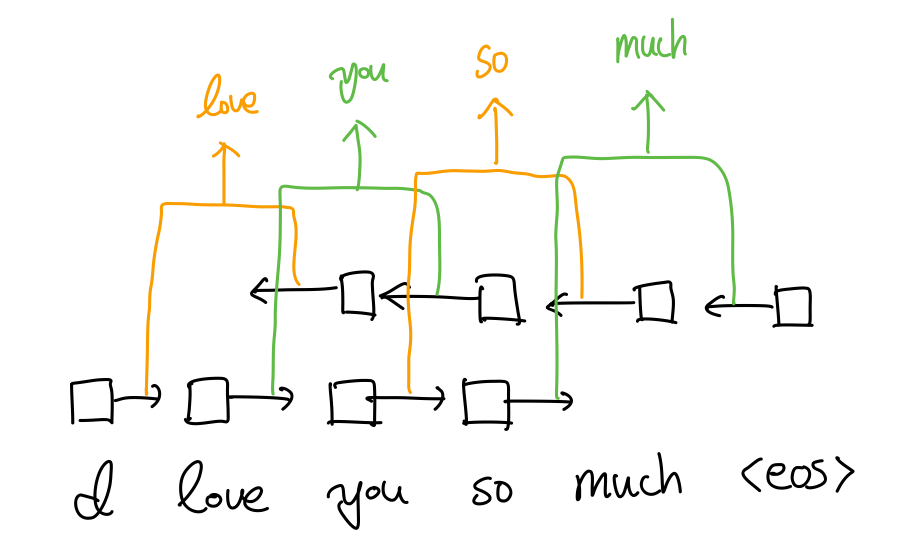 love you so much
I love you so much <eos>